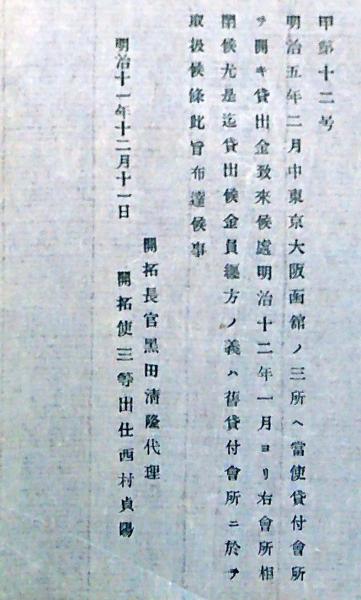 甲第十二号
明治五年二月中東京大阪函館ノ三所ヘ當使貸付會所
ヲ開キ貸出金致來候處明治十二年一月ヨリ右會所相
閉候尤是迄貸出候金員纏方ノ義ハ舊貸付會所ニ於テ
取扱候條此旨布達候事
開拓長官黑田清隆代理
明治十一年十二月十一日 開拓使三等出仕西村貞陽